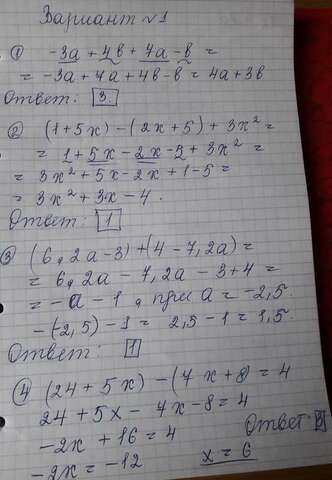 Вариант №1
① -3a + 4b + 7a - b =
= -3a + 7a + 4b - b = 4a + 3b
Ответ: 3.
② (1 + 5x) - (2x + 5) + 3x² =
= 1 + 5x - 2x - 5 + 3x² =
= 3x² + 5x - 2x + 1 - 5 =
= 3x² + 3x - 4.
Ответ: 1
③ (6,2a - 3) + (4 - 7,2a) =
= 6,2a - 7,2a - 3 + 4 =
= -a - 1, при a = -2,5.
-(-2,5) - 1 = 2,5 - 1 = 1,5.
Ответ: 1
④ (24 + 5x) - (7x + 8) = 4
24 + 5x - 7x - 8 = 4
-2x + 16 = 4
Ответ
-2x = -12 x = 6